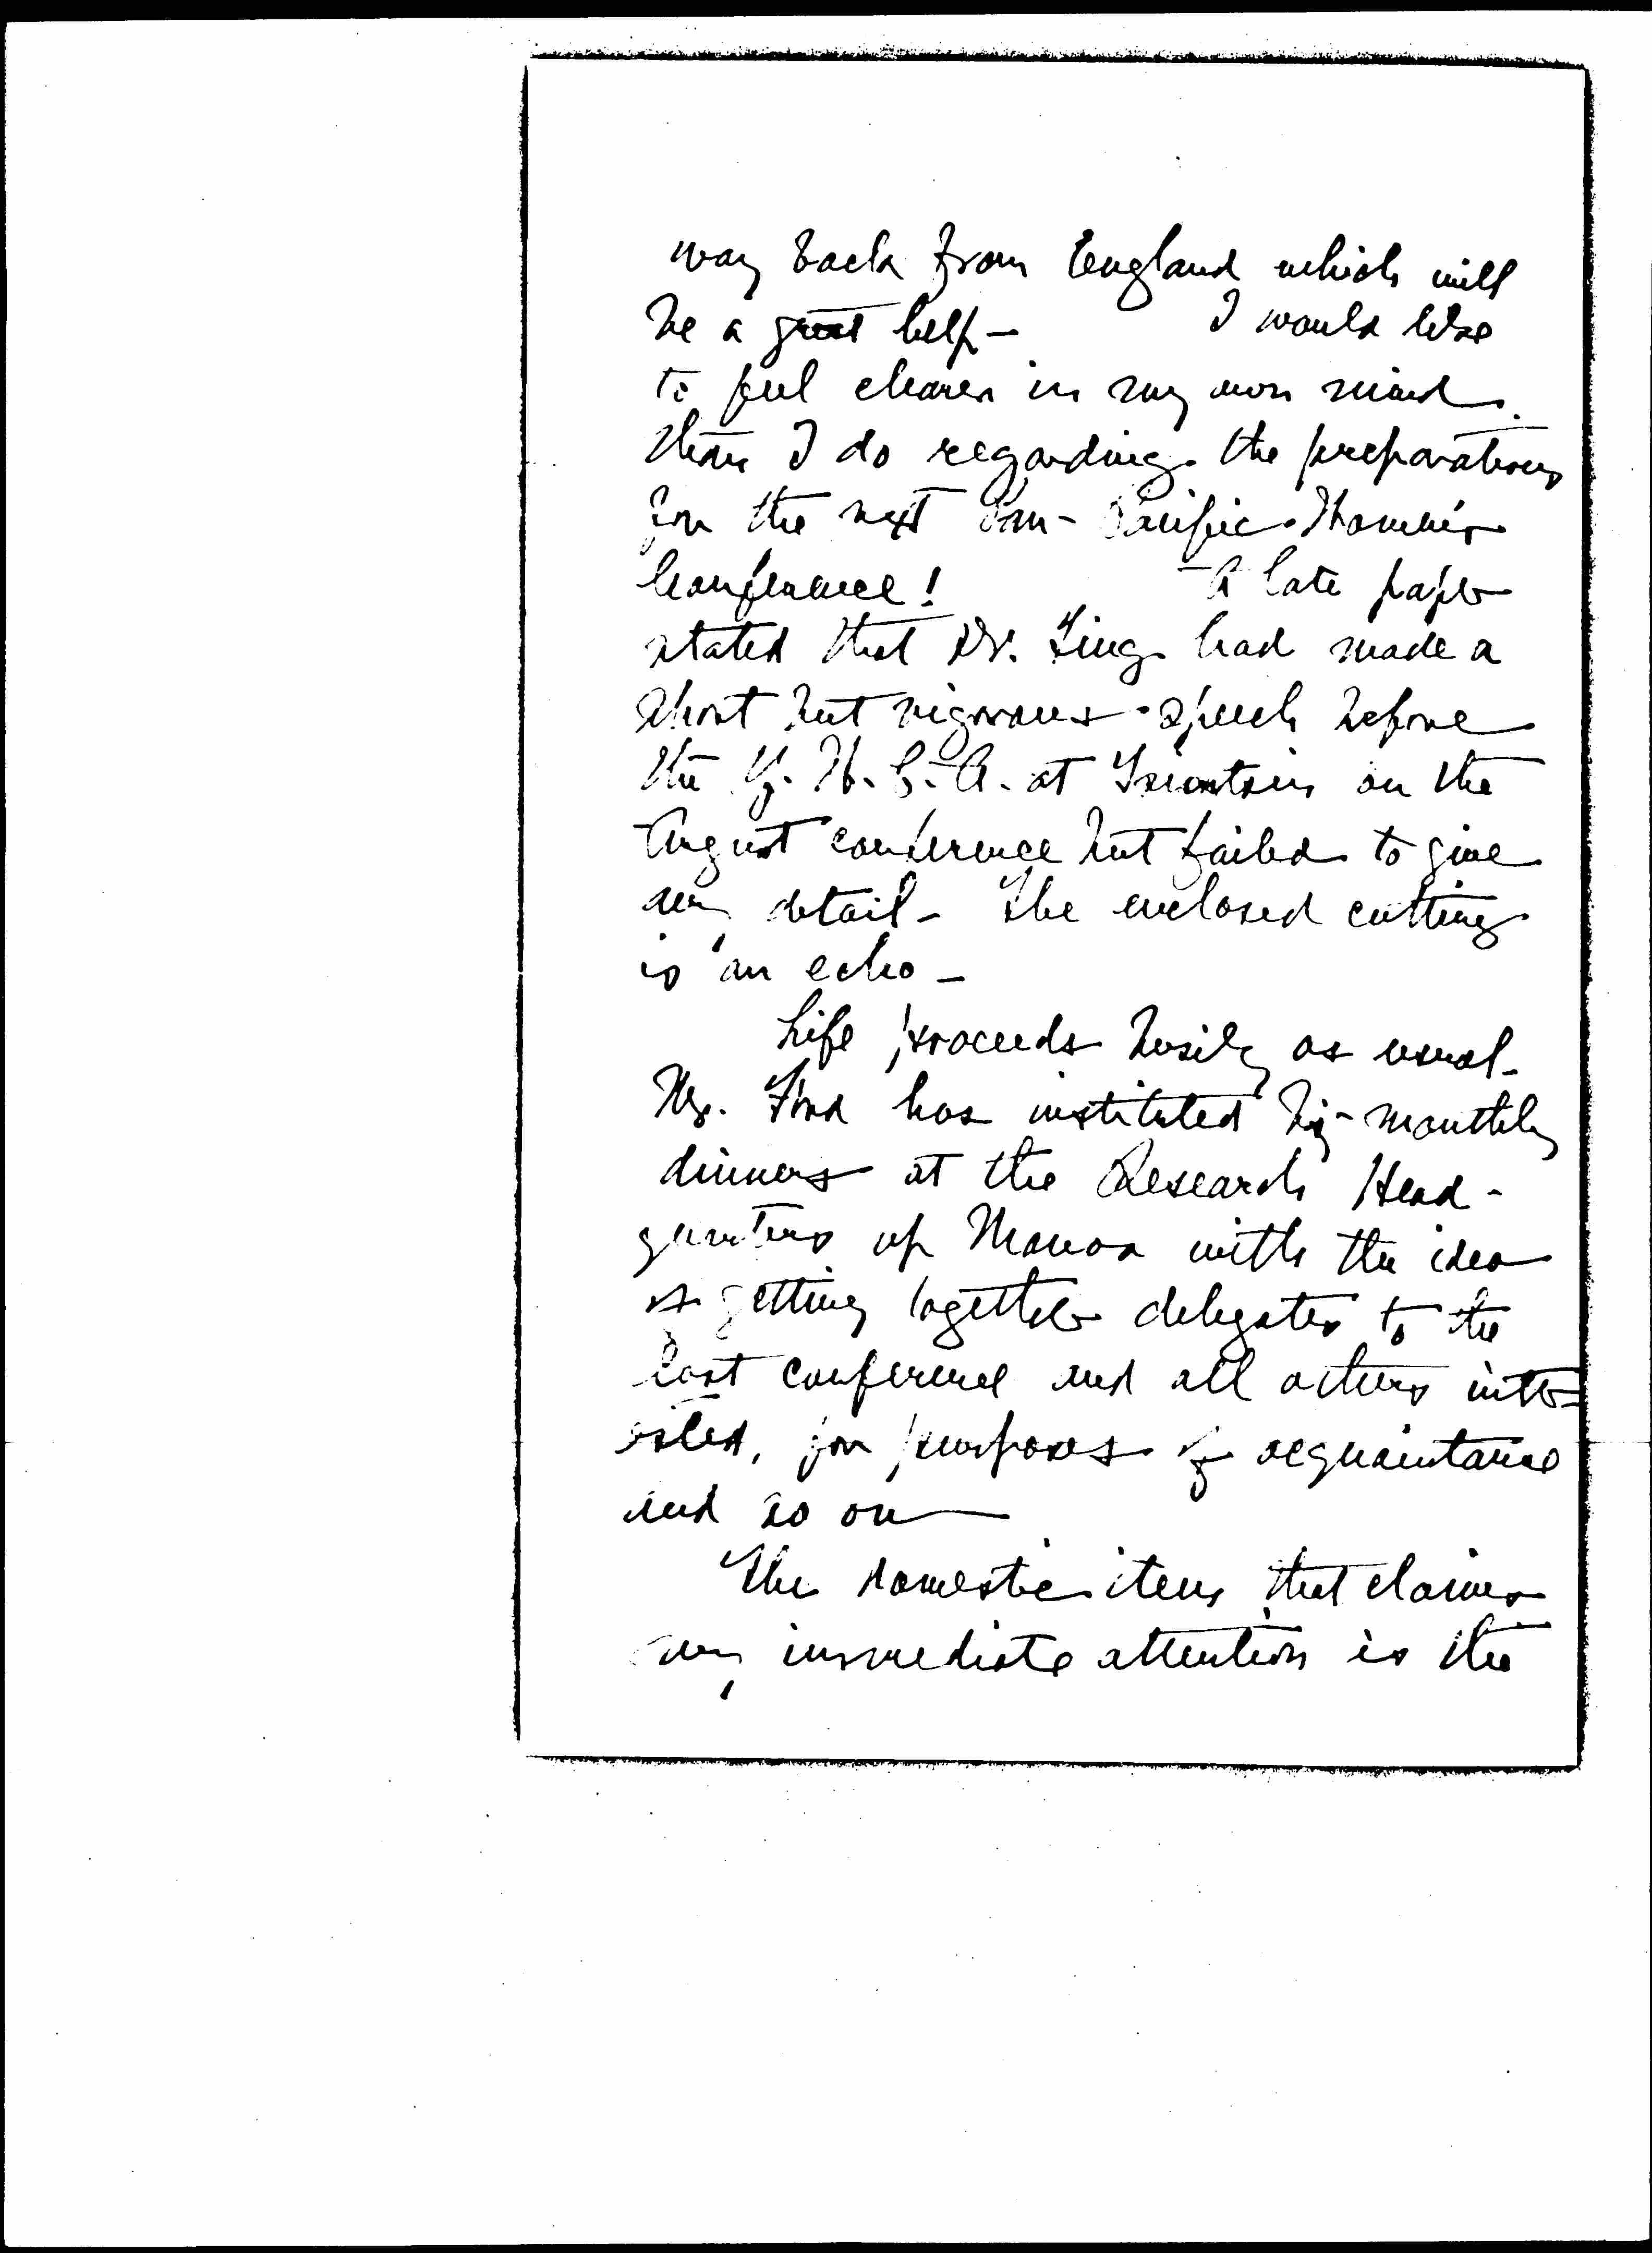 way back from England which will
be a great help – I would like
to feel clearer in my own mind
than I do regarding the preparations
for the next Pan-Pacific Women's
Conference! A late paper
stated that Dr. Ting had made a
short but vigorous speech before
the Y. W. C. A. at Tientsin on the
August conference but failed to give
any detail – The enclosed cutting
is an echo –
Life proceeds busily as usual –
Mr. Ford has instituted bi-monthly
dinners at the Research Head-
quarters up Manoa with the idea
of getting together delegates to the
last conference and all others inter-
ested, for purposes of acquaintance
and so on —
The domestic item that claims
my immediate attention is the